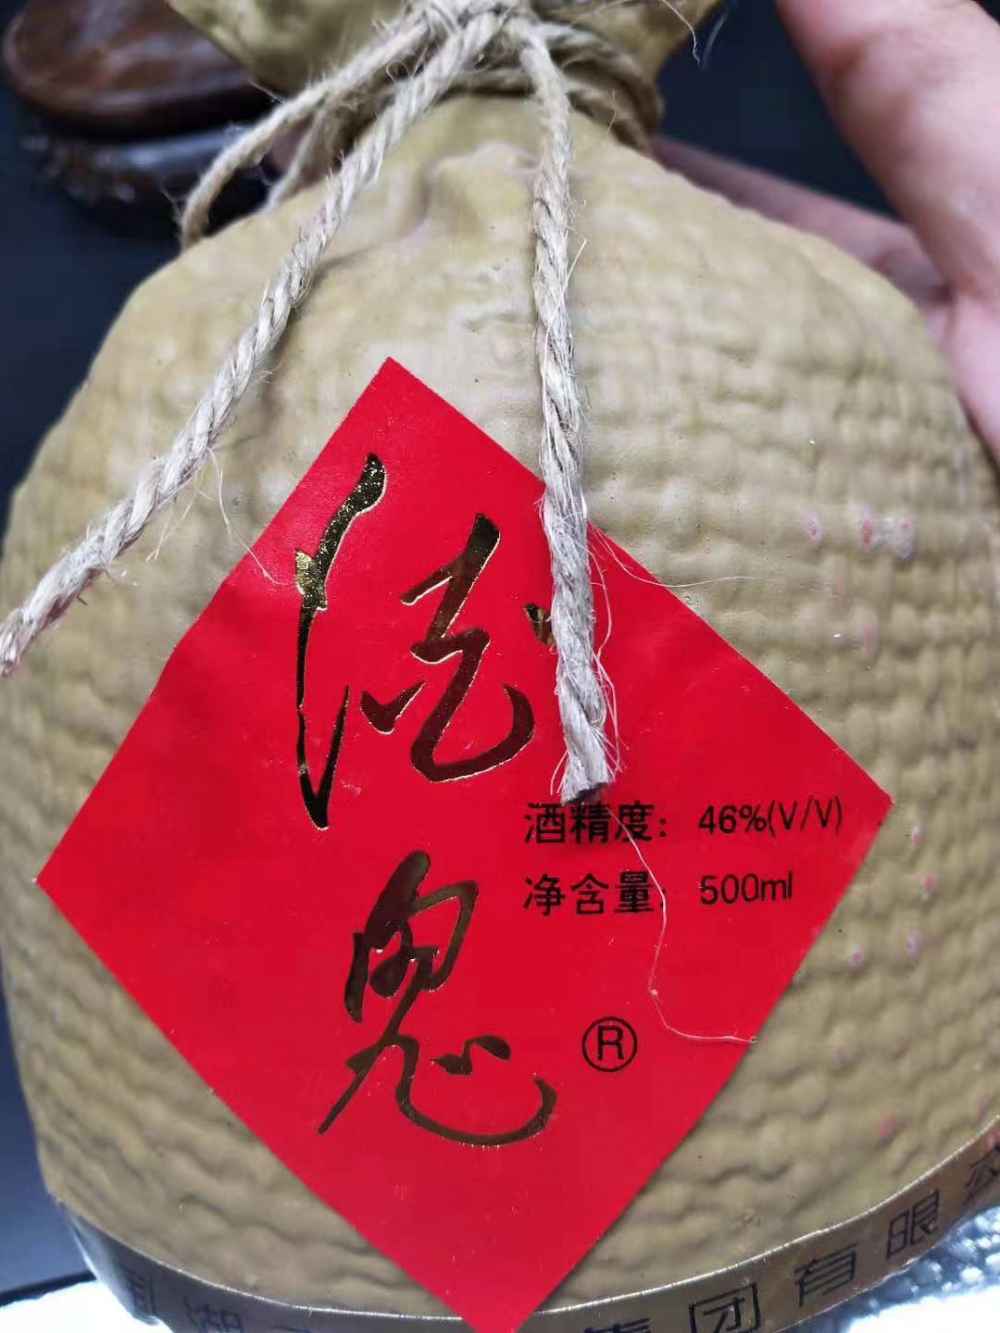 酒
鬼
酒精度： 46%(V/V)
净含量： 500ml
®
湖
集团有限公